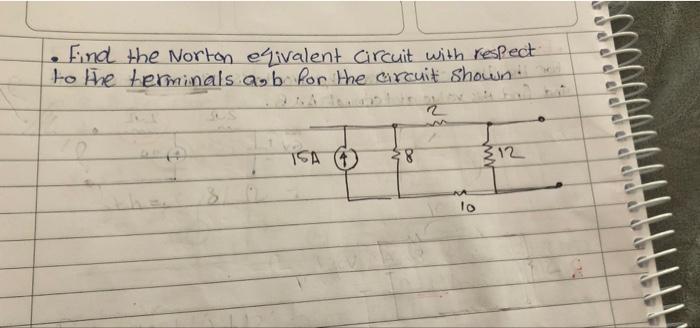 • Find the Norton eqivalent circuit with respect
to the terminals a,b for the circuit shown:
2
15A
8
12
10